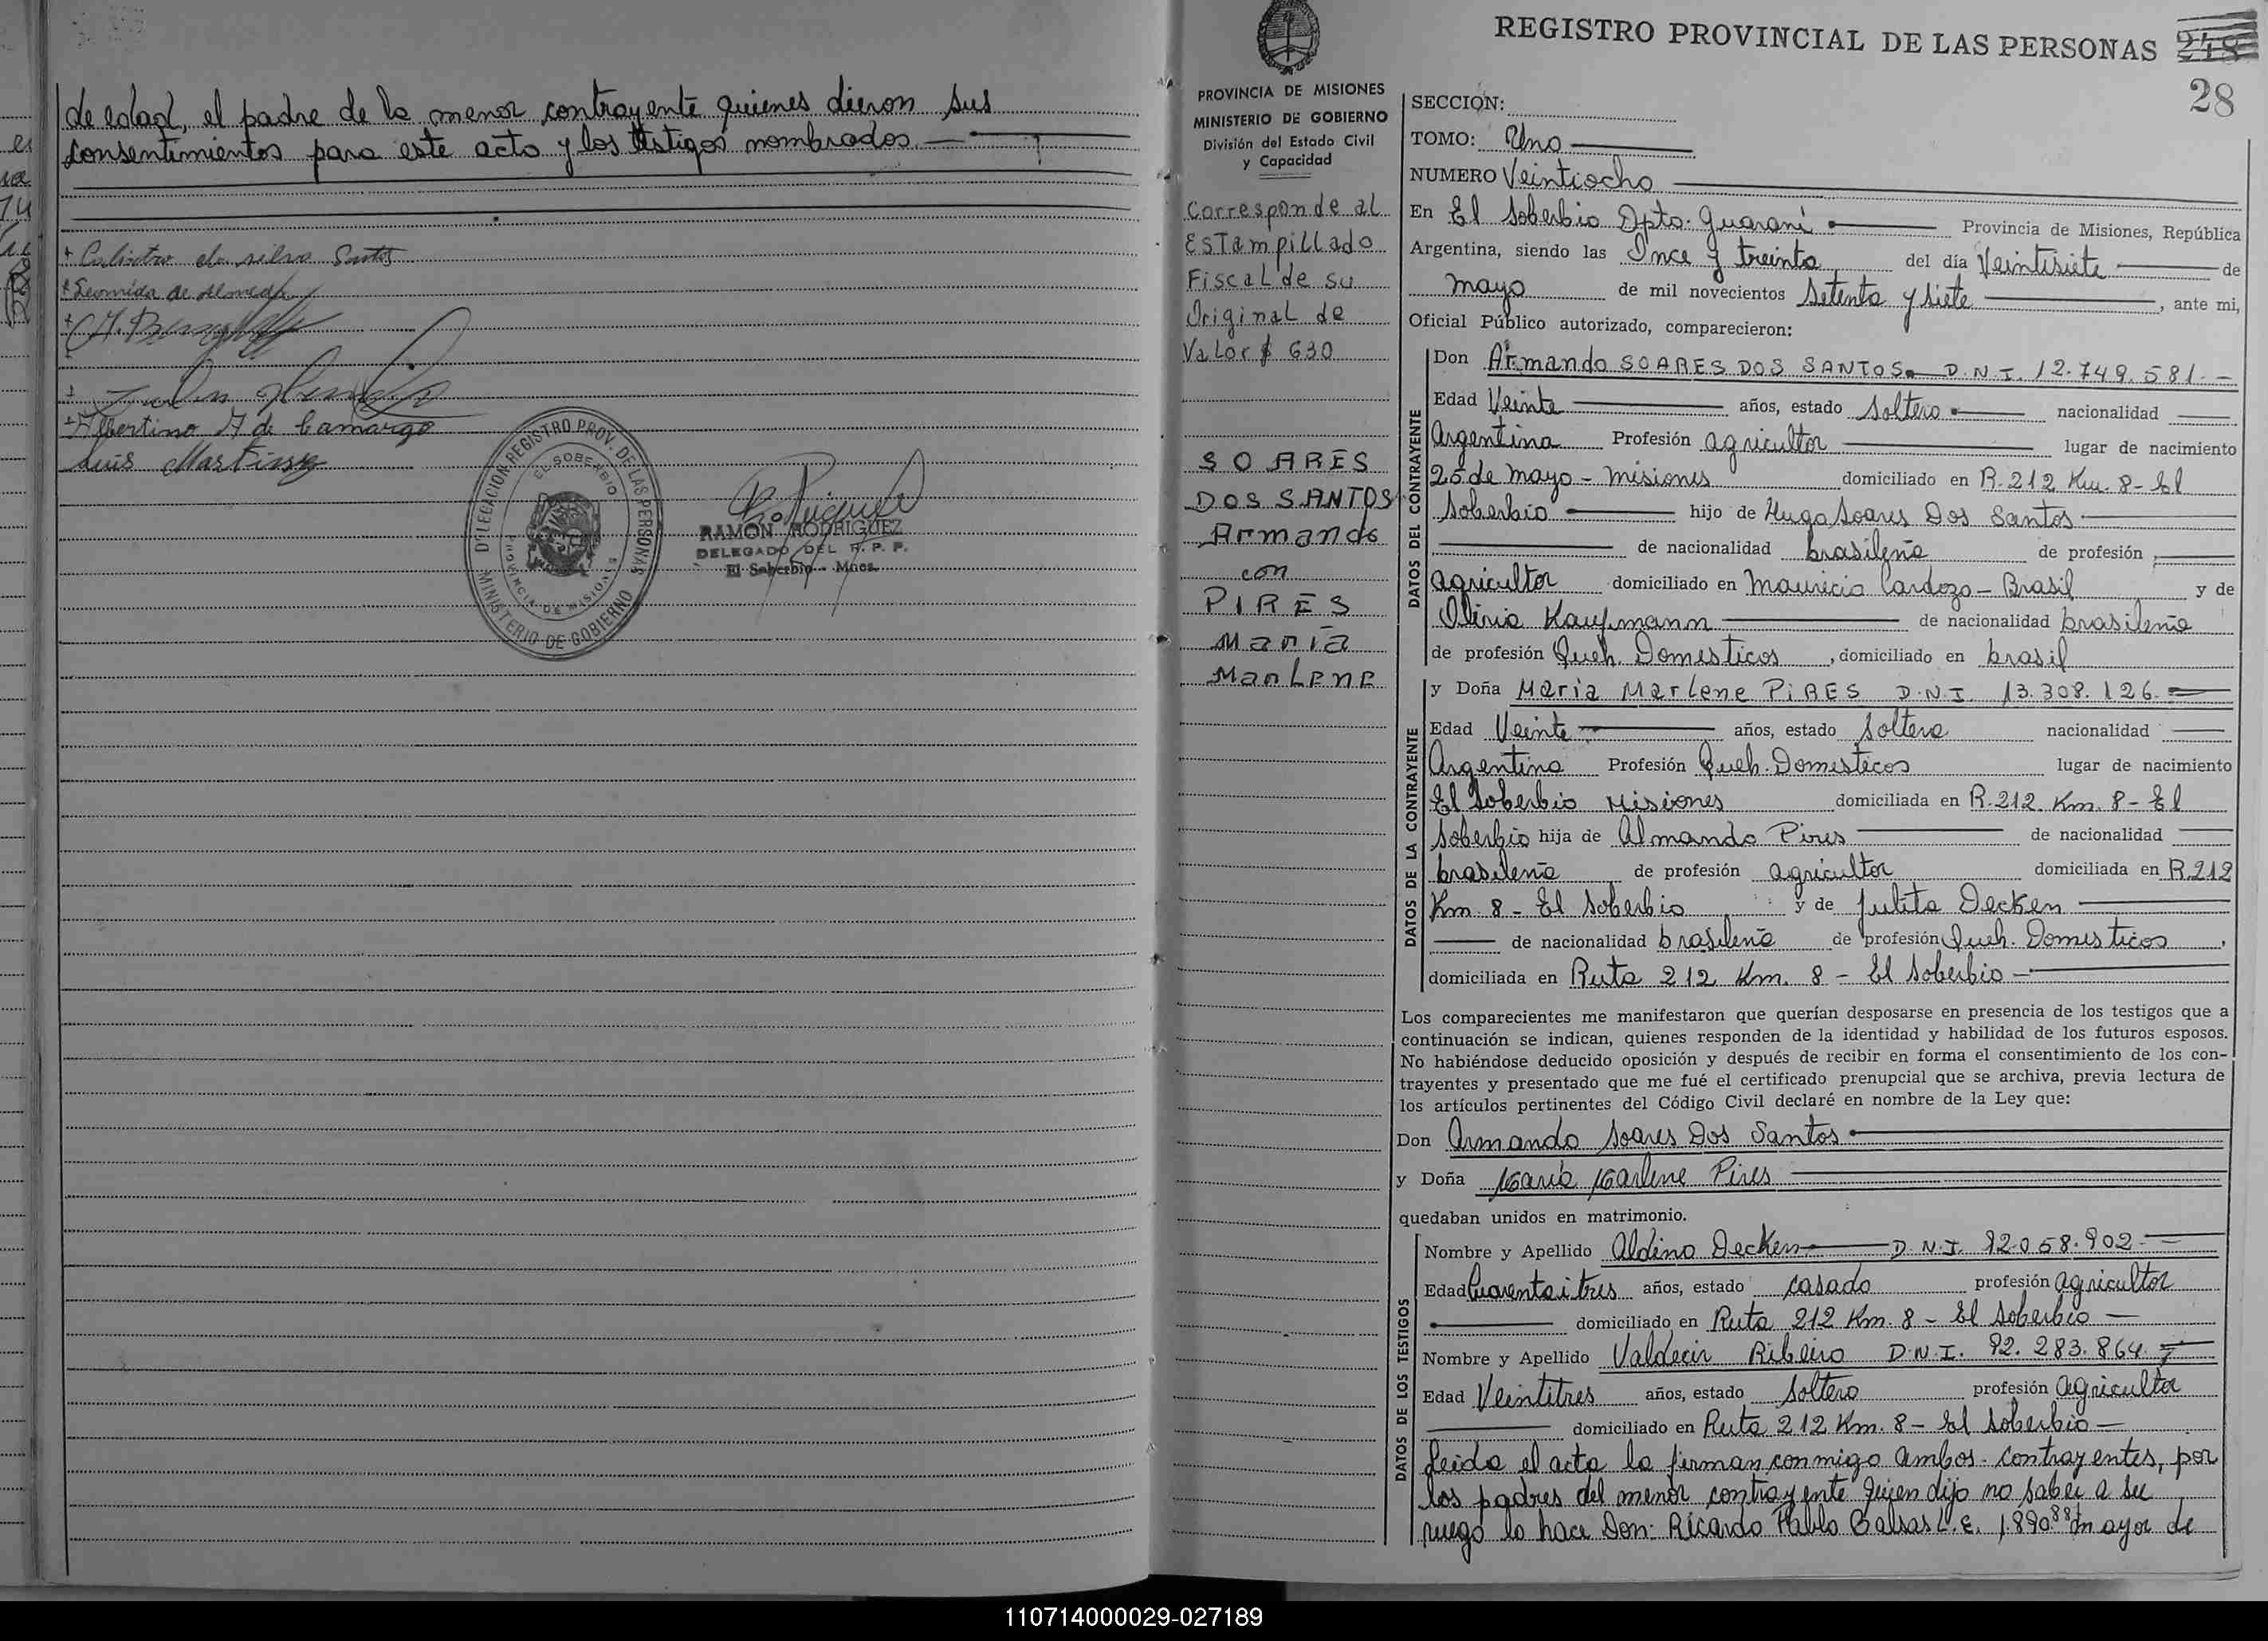 de edad, el padre de la menor contrayente quienes dieron sus
consentimientos para este acto y los testigos nombrados.
Calintro da silva Santos
Leonida de Almeda
Albertino A de Camargo
Luis Martinez
DELEGACION REGISTRO PROV. DE LAS PERSONAS
EL SOBERBIO
PROVINCIA DE MISIONES
MINISTERIO DE GOBIERNO
RAMON RODRIGUEZ
DELEGADO DEL R. P. P.
El Soberbio - Mnes.
REGISTRO PROVINCIAL DE LAS PERSONAS 248
28
PROVINCIA DE MISIONES
MINISTERIO DE GOBIERNO
División del Estado Civil
y Capacidad
Corresponde al
Estampillado
Fiscal de su
Original de
Valor $ 630
SOARES
DOS SANTOS
Armando
con
PIRES
Maria
Marlene
SECCION:
TOMO: Uno
NUMERO Veintiocho
En El Soberbio Dpto. Guaraní Provincia de Misiones, República
Argentina, siendo las Once y treinta del día Veintisiete de
mayo de mil novecientos Setenta y siete, ante mi,
Oficial Público autorizado, comparecieron:
DATOS DEL CONTRAYENTE
Don Armando SOARES DOS SANTOS D.N.I. 12.749.581.-
Edad Veinte años, estado Soltero nacionalidad
Argentina Profesión agricultor lugar de nacimiento
25 de mayo - misiones domiciliado en R. 212 Km. 8 - El
Soberbio hijo de Hugo Soares Dos Santos
de nacionalidad brasileña de profesión
agricultor domiciliado en Mauricio Cardozo - Brasil y de
Oliria Kaufmann de nacionalidad brasileña
de profesión Queh. Domesticos, domiciliado en brasil
DATOS DE LA CONTRAYENTE
y Doña Maria Marlene PIRES D.N.I. 13.308.126.
Edad Veinte años, estado Soltera nacionalidad
Argentina Profesión Queh. Domesticos lugar de nacimiento
El Soberbio Misiones domiciliada en R. 212 Km. 8 - El
Soberbio hija de Almando Pires de nacionalidad
brasileña de profesión agricultor domiciliada en R. 212
Km. 8 - El Soberbio y de Julita Decken
de nacionalidad brasileña de profesión Queh. Domesticos,
domiciliada en Ruta 212 Km. 8 - El Soberbio
Los comparecientes me manifestaron que querían desposarse en presencia de los testigos que a
continuación se indican, quienes responden de la identidad y habilidad de los futuros esposos.
No habiéndose deducido oposición y después de recibir en forma el consentimiento de los con-
trayentes y presentado que me fué el certificado prenupcial que se archiva, previa lectura de
los artículos pertinentes del Código Civil declaré en nombre de la Ley que:
Don Armando Soares Dos Santos
y Doña Maria Marlene Pires
quedaban unidos en matrimonio.
DATOS DE LOS TESTIGOS
Nombre y Apellido Aldino Decken D.N.I. 92.058.902.
Edad Cuarentaitres años, estado casado profesión agricultor
domiciliado en Ruta 212 Km. 8 - El Soberbio
Nombre y Apellido Valdecir Ribeiro D.N.I. 92.283.864.
Edad Veintitres años, estado Soltero profesión agricultor
domiciliado en Ruta 212 Km. 8 - El Soberbio
Leida el acta la firman conmigo ambos contrayentes, por
los padres del menor contrayente quien dijo no saber a su
ruego lo hace Don: Ricardo Pablo Balsas L.E. 1.890.881 mayor de
110714000029-027189